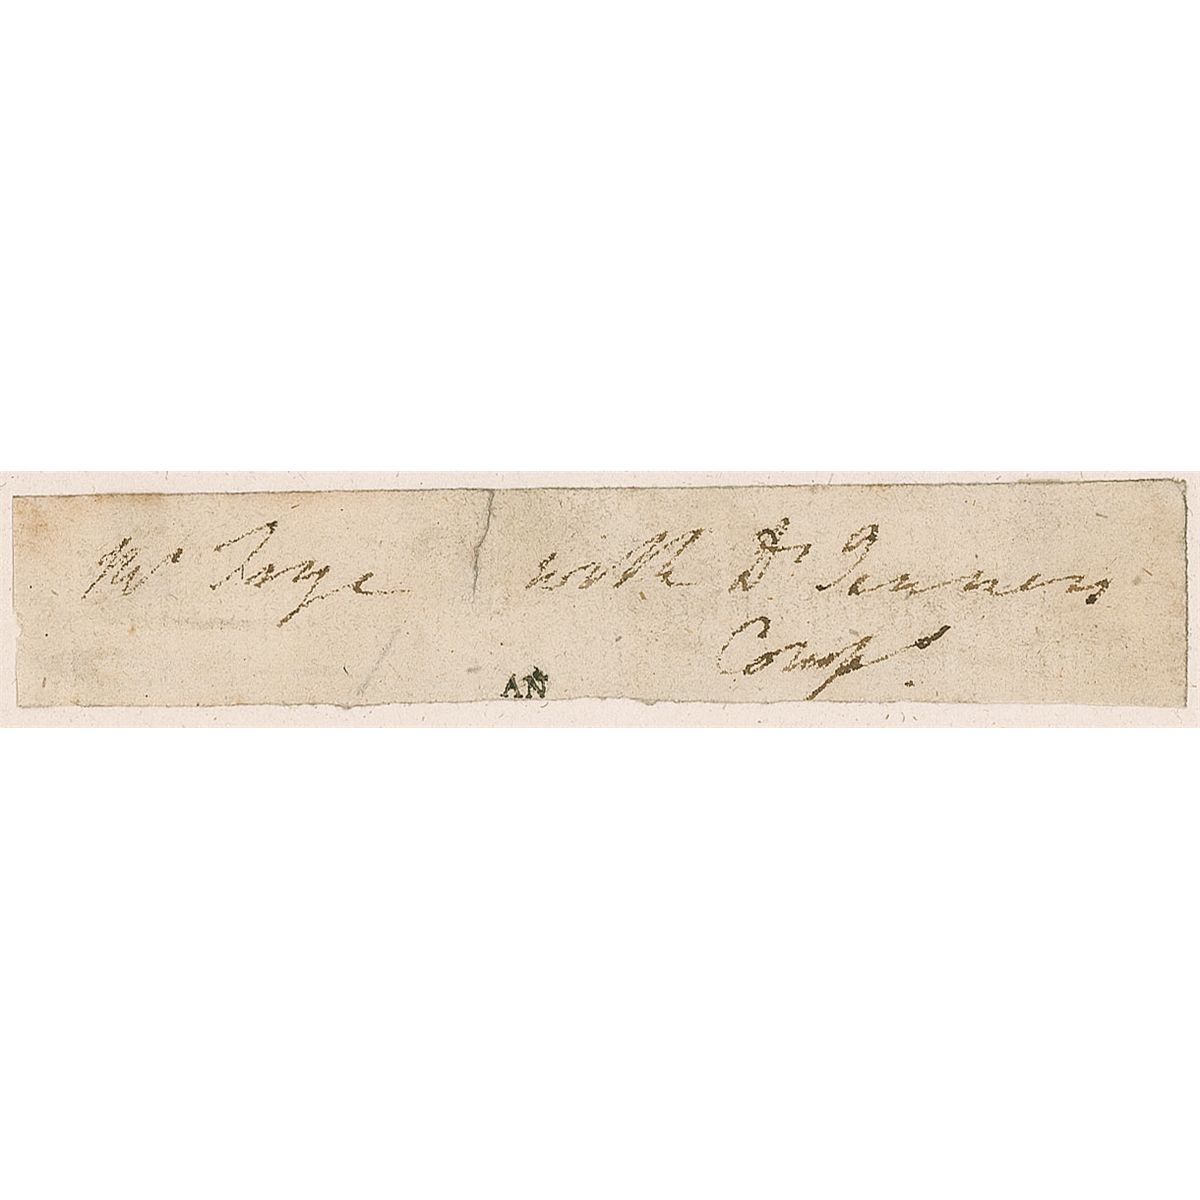 Mr Foye with Dr Jenners
Compts
AN